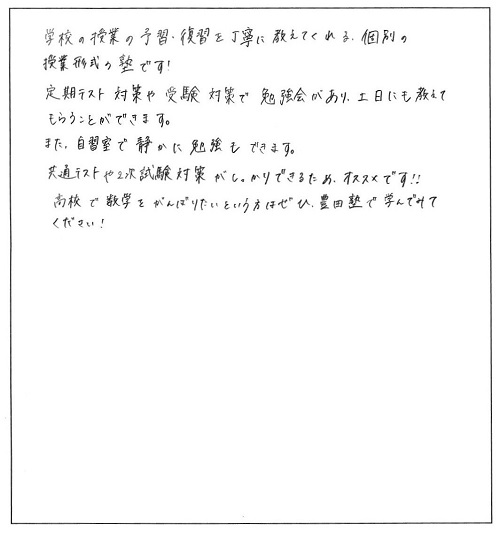 学校の授業の予習・復習を丁寧に教えてくれる、個別の
授業形式の塾です!
定期テスト対策や受験対策で勉強会があり、土日にも教えて
もらうことができます。
また、自習室で静かに勉強もできます。
共通テストや2次試験対策がしっかりできるため、オススメです!!
高校で数学をがんばりたいという方はぜひ、豊田塾で学んでみて
ください!